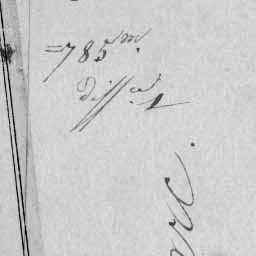 =785m.
diffce 1
rc.